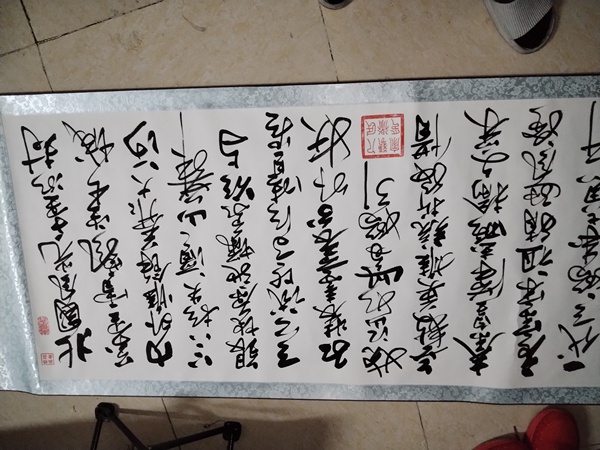 北國風光千里冰封
萬里雪飄望長城
內外惟餘莽莽大河
上下頓失滔滔山舞
銀蛇原馳蠟象欲與
天公試比高須晴日看
紅裝素裹分外妖
嬈江山如此多嬌引
無數英雄競折腰惜
秦皇漢武略輸文采
唐宗宋祖稍遜風騷
一代天驕成吉思汗